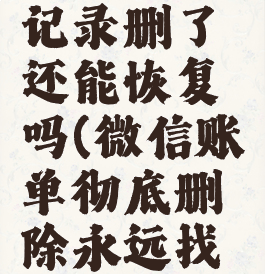 记录删了
还能恢复
吗(微信账
单彻底删
除永远找